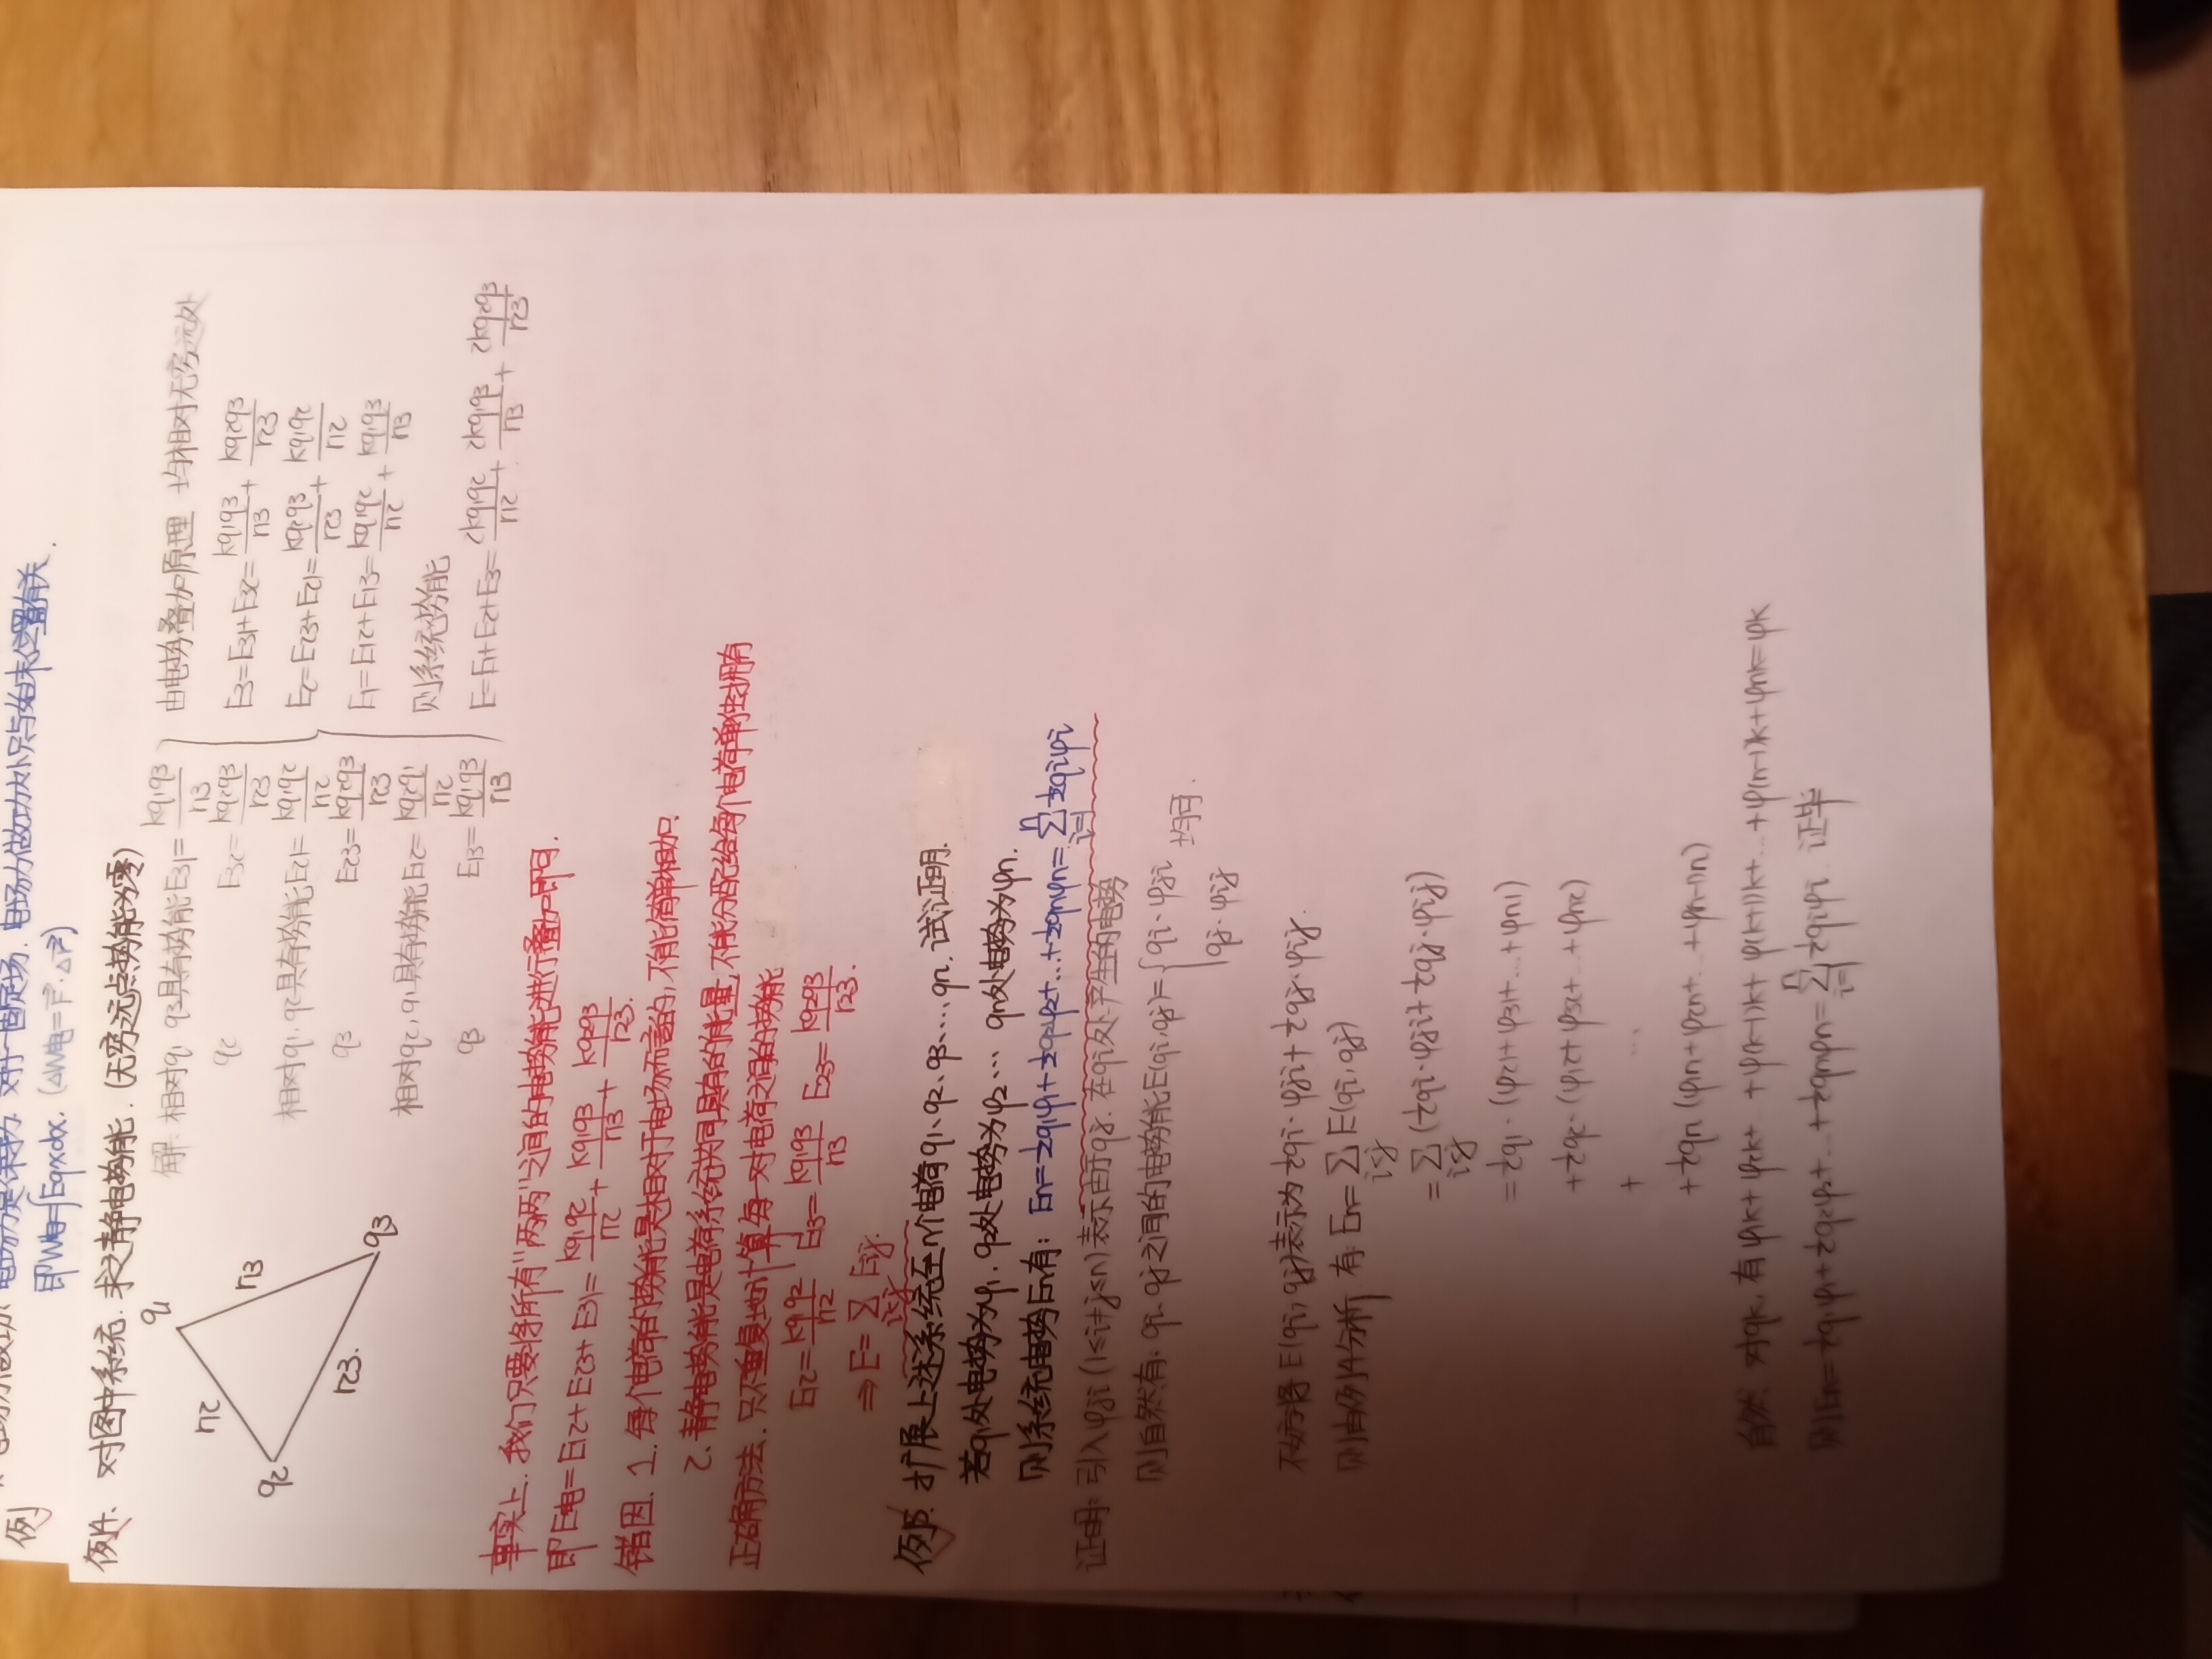 电场力是保守力. 对于一固定场. 电场力做功大小只与始末位置有关.
即W电=∫Eqxdx. (ΔW电=F·Δr)
例4. 对图中系统. 求之静电势能. (无穷远点势能为零)
q1
r12
r13
q2
r23.
q3
解. 相对q1, q3具有势能E31=kq1q3/r13
q2 E32=kq2q3/r23
相对q1, q2具有势能E21=kq1q2/r12
q3 E23=kq2q3/r23
相对q2, q1具有势能E12=kq2q1/r12
q3 E13=kq1q3/r13
由电势叠加原理 均相对无穷远处
E3=E31+E32=kq1q3/r13+kq2q3/r23
E2=E23+E21=kq2q3/r23+kq1q2/r12
E1=E12+E13=kq1q2/r12+kq1q3/r13
则系统势能
E=E1+E2+E3=2kq1q2/r12+2kq1q3/r13+2kq2q3/r23
事实上. 我们只要将所有"两两"之间的电势能进行叠加即可.
即E电=E12+E23+E31=kq1q2/r12+kq1q3/r13+kq2q3/r23.
错因. 1. 每个电荷的势能是相对于电场而言的, 不能简单相加.
2. 静电势能是电荷系统共同具有的能量, 不能分配给每个电荷单独拥有
正确方法. 只不重复地计算每一对电荷之间的势能
E12=kq1q2/r12 E13=kq1q3/r13 E23=kq2q3/r23.
⇒E=∑i<j Eij.
例5. 扩展上述系统至n个电荷q1、q2、q3、…、qn. 试证明.
若q1处电势为φ1. q2处电势为φ2… qn处电势为φn.
则系统电势En有: En=½q1φ1+½q2φ2+…+½qnφn=∑(i=1→n)½qiφi
证明: 引入φji (1≤i≠j≤n)表示由于qj. 在qi处产生的电势
则自然有: qi、qj之间的电势能E(qi,qj)={qi·φji
qj·φij 均可.
不妨将E(qi,qj)表示为½qi·φji+½qj·φij.
则由例4分析 有: En=∑i<j E(qi,qj)
=∑i<j (½qi·φji+½qj·φij)
=½q1·(φ21+φ31+…+φn1)
+½q2·(φ12+φ32+…+φn2)
+ …
+½qn(φ1n+φ2n+…+φ(n-1)n)
自然. 对qk, 有φ1k+φ2k+…+φ(k-1)k+φ(k+1)k+…+φ(n-1)k+φnk=φk
则En=½q1φ1+½q2φ2+…+½qnφn=∑(i=1→n)½qiφi. 证毕